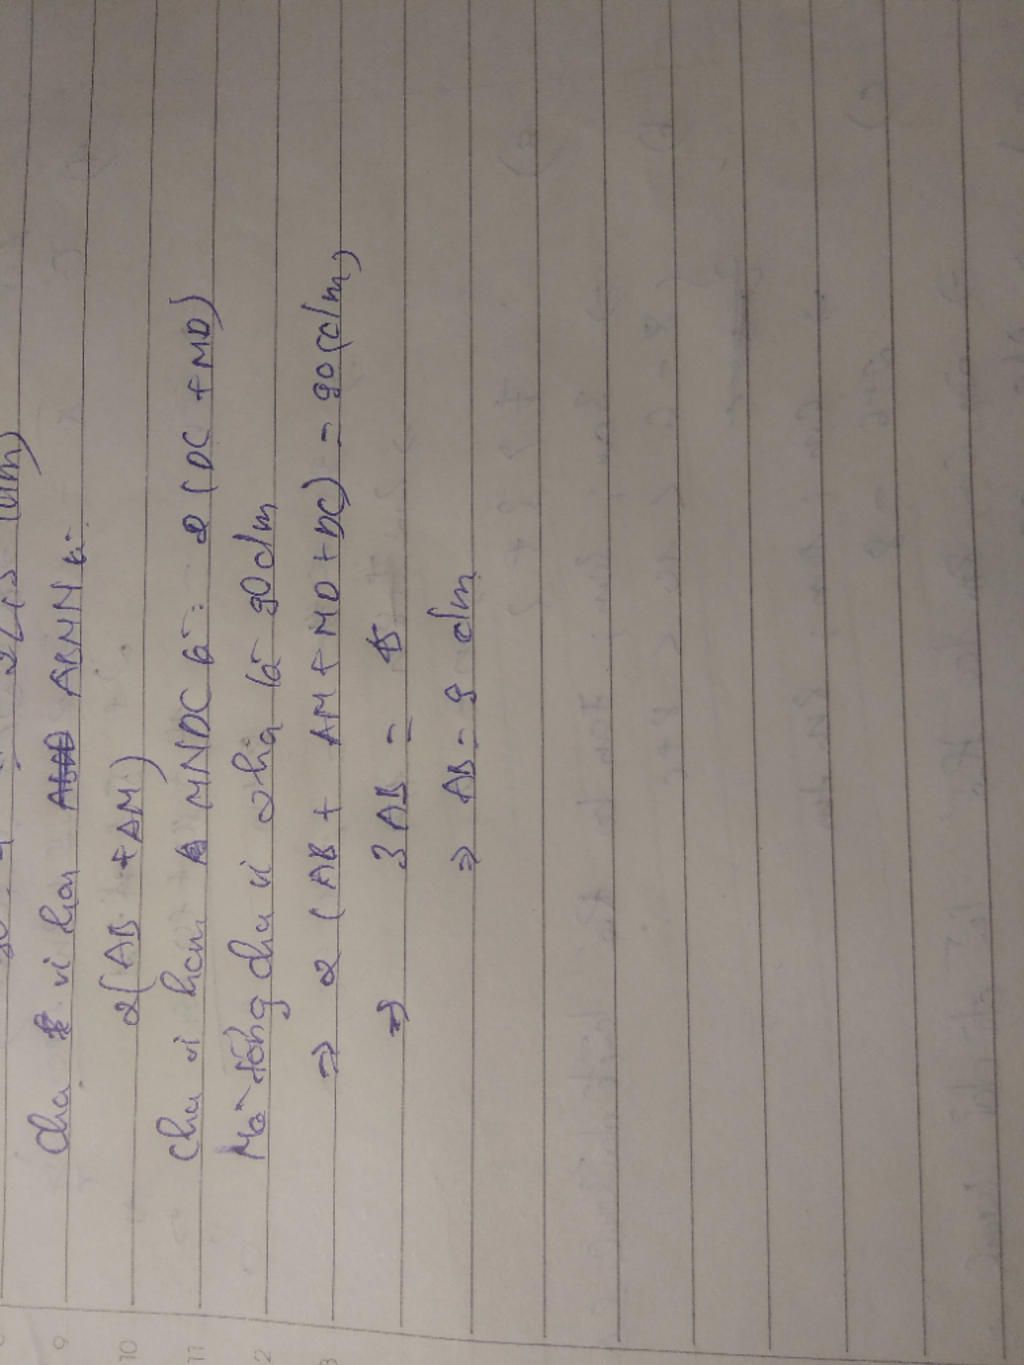 (dm)
Chu vi hcn ABNM là:
2(AB + AM)
Chu vi hcn MNDC là: 2(DC + MD)
Mà tổng chu vi 2hcn là 90dm
=> 2(AB + AM + MD + DC) = 90(dm)
=> 3AB = 45
=> AB = 9 dm
9
10
11
2
3